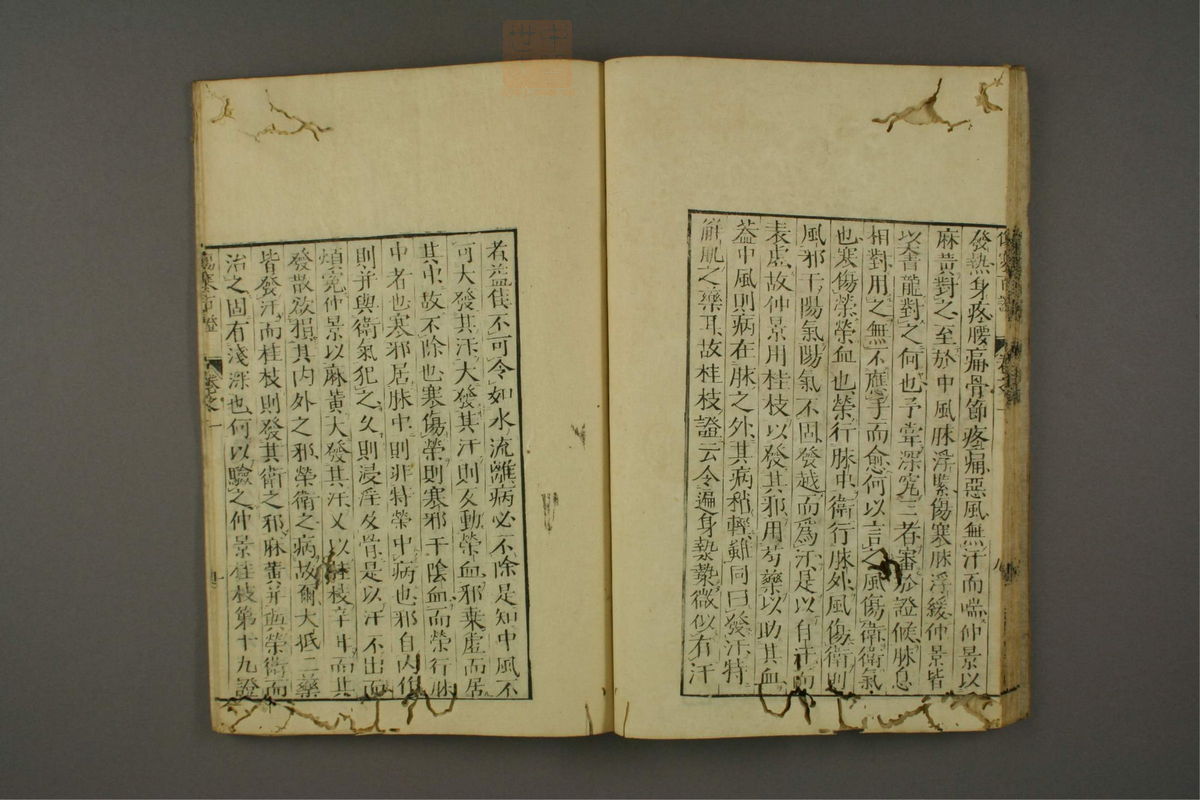 發熱身疼腰痛骨節疼痛惡風無汗而喘仲景以
麻黄對之至於中風脉浮緊傷寒脉浮緩仲景皆
以青龍對之何也予甞深究三者審於證候脉息
相對用之無不應手而愈何以言之風傷衛衛氣
也寒傷榮榮血也榮行脉中衛行脉外風傷衛則
風邪干陽氣陽氣不固發越而爲汗是以自汗而
表虚故仲景用桂枝以發其邪用芍藥以助其血
葢中風則病在脉之外其病稍輕雖同曰發汗特
解肌之藥耳故桂枝證云令遍身漐漐微似有汗
者益佳不可令如水流離病必不除是知中風不
可大發其汗大發其汗則反動榮血邪乗虚而居
其中故不除也寒傷榮則寒邪干陰血而榮行脉
中者也寒邪居脉中則非特榮中病也邪自内作
則并與衛氣犯之久則浸淫及骨是以汗不出而
煩寃仲景以麻黄大發其汗又以桂枝辛甘而其
發散欲損其内外之邪榮衛之病故爾大抵二藥
皆發汗而桂枝則發其衛之邪麻黄并與榮衛而
治之固有淺深也何以驗之仲景桂枝第十九證